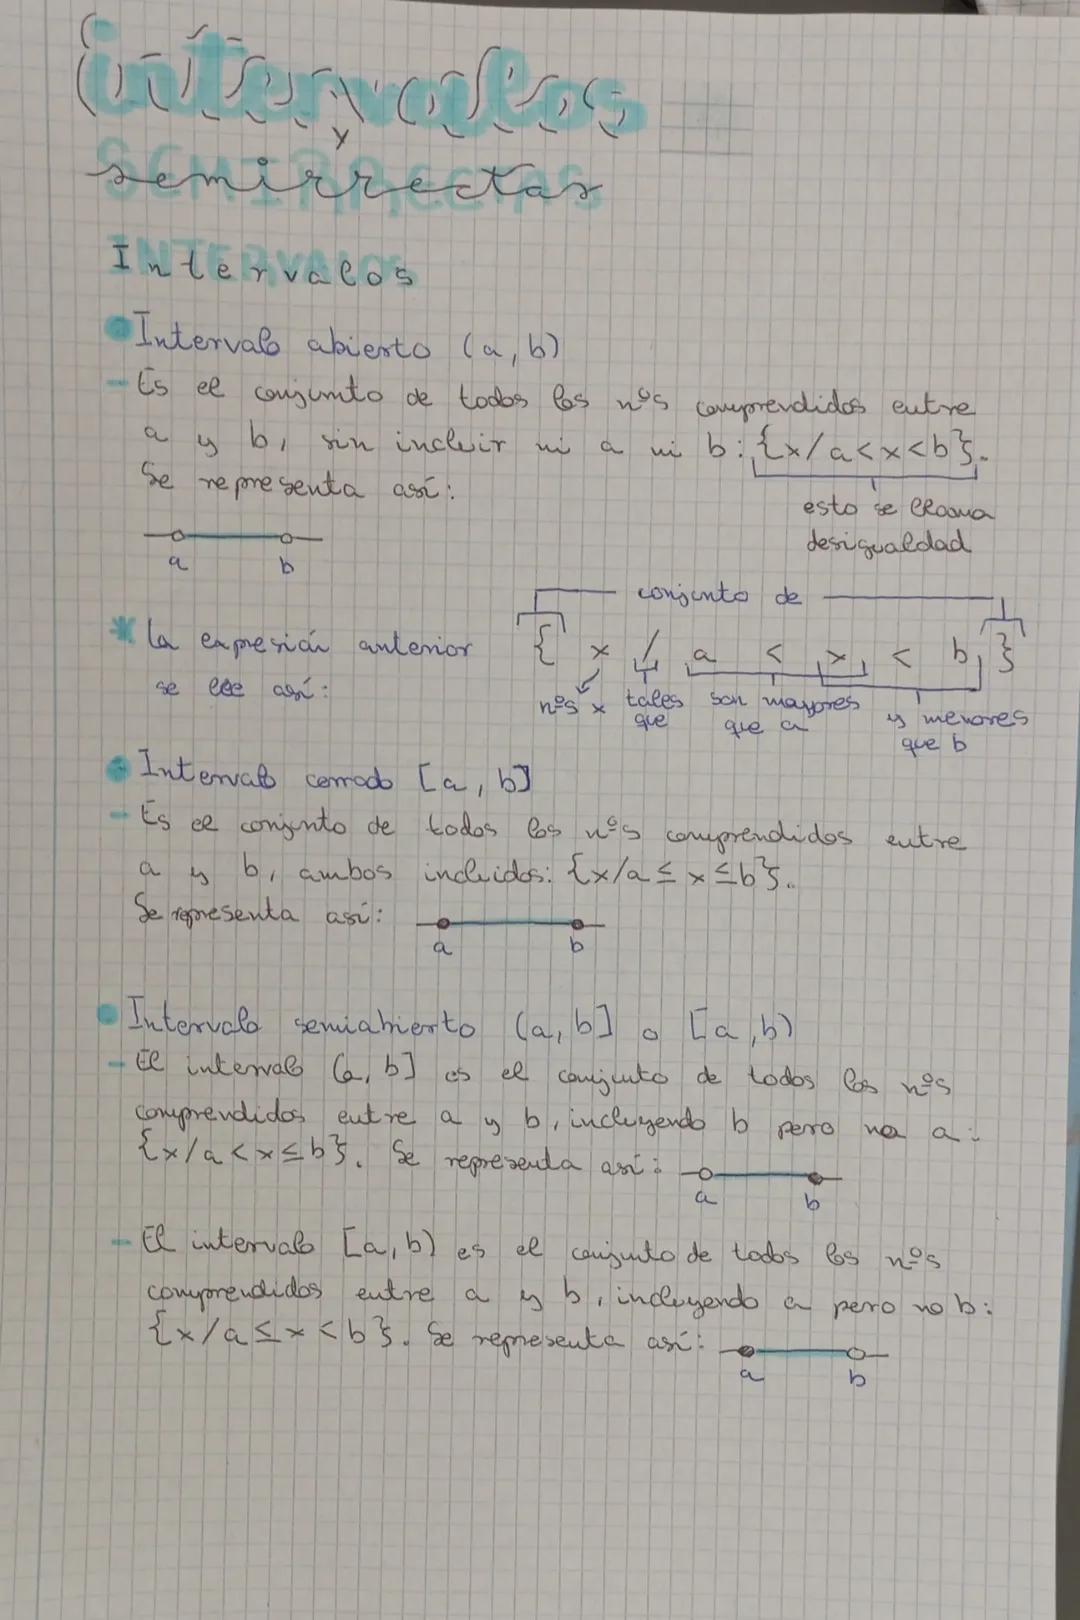 intervalos
y
semirrectas
Intervalos
Intervalo abierto (a, b)
- Es el conjunto de todos los nºs comprendidos entre
a y b, sin incluir ni a ni b: {x/a<x<b}.
Se representa así:
esto se llama
desigualdad
a b
conjunto de
* La expresión anterior
se lee así:
{ x / a < x < b }
nºs x tales que son mayores que a y menores que b
Intervalo cerrado [a, b]
- Es el conjunto de todos los nºs comprendidos entre
a y b, ambos incluidos: {x/a≤x≤b}.
Se representa así:
a b
Intervalo semiabierto (a, b] o [a, b)
- El intervalo (a, b] es el conjunto de todos los nºs
comprendidos entre a y b, incluyendo b pero no a:
{x/a<x≤b}. Se representa así:
a b
- El intervalo [a, b) es el conjunto de todos los nºs
comprendidos entre a y b, incluyendo a pero no b:
{x/a≤x<b}. Se representa así:
a b